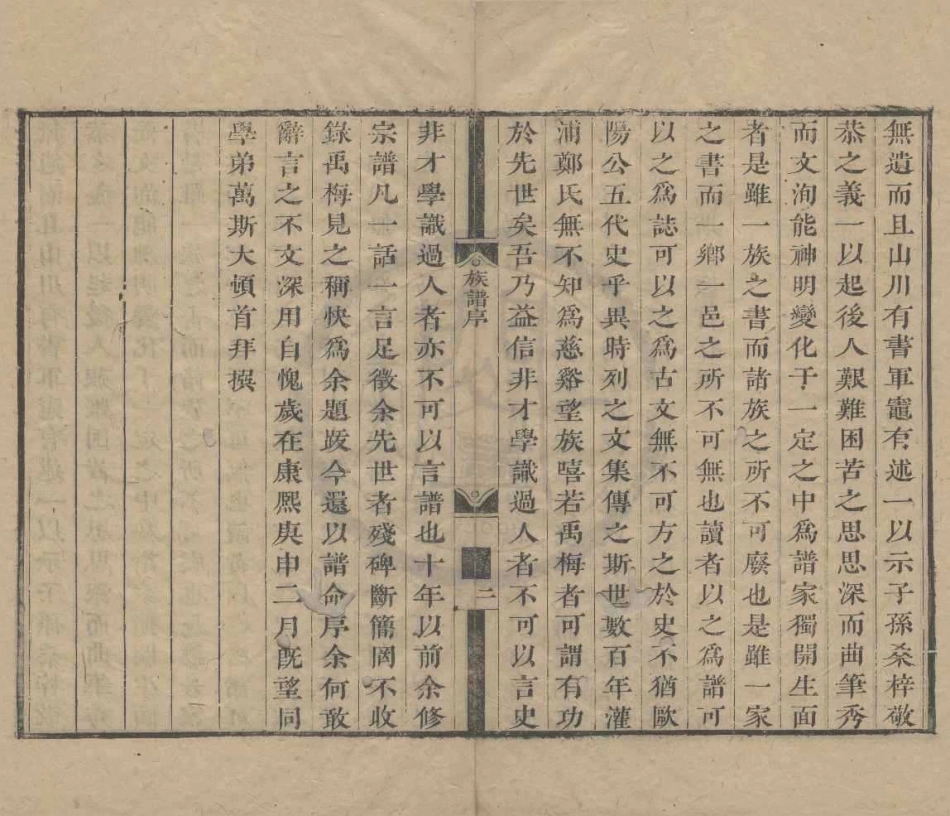 無遺而且山川有書軍竈有述一以示子孫桑梓敬
恭之義一以起後人艱難困苦之思思深而曲筆秀
而文洵能神明變化于一定之中爲譜家獨開生面
者是雖一族之書而諸族之所不可廢也是雖一家
之書而一鄉一邑之所不可無也讀者以之爲譜可
以之爲誌可以之爲古文無不可方之於史不猶歐
陽公五代史乎異時列之文集傳之斯世數百年灌
浦鄭氏無不知爲慈谿望族嘻若禹梅者可謂有功
於先世矣吾乃益信非才學識過人者不可以言史
族譜序
二
非才學識過人者亦不可以言譜也十年以前余修
宗譜凡一話一言足徵余先世者殘碑斷簡罔不收
錄禹梅見之稱快爲余題跋今還以譜命序余何敢
辭言之不文深用自愧歲在康熙庚申二月既望同
學弟萬斯大頓首拜撰